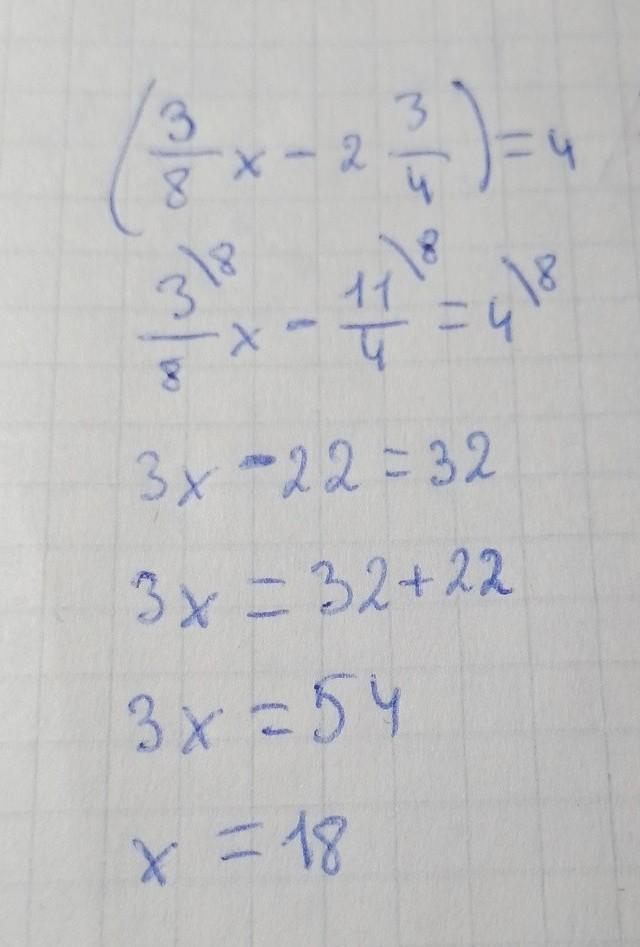 (3/8 x - 2 3/4) = 4
3\8/8 x - 11\8/4 = 4\8
3x - 22 = 32
3x = 32 + 22
3x = 54
x = 18